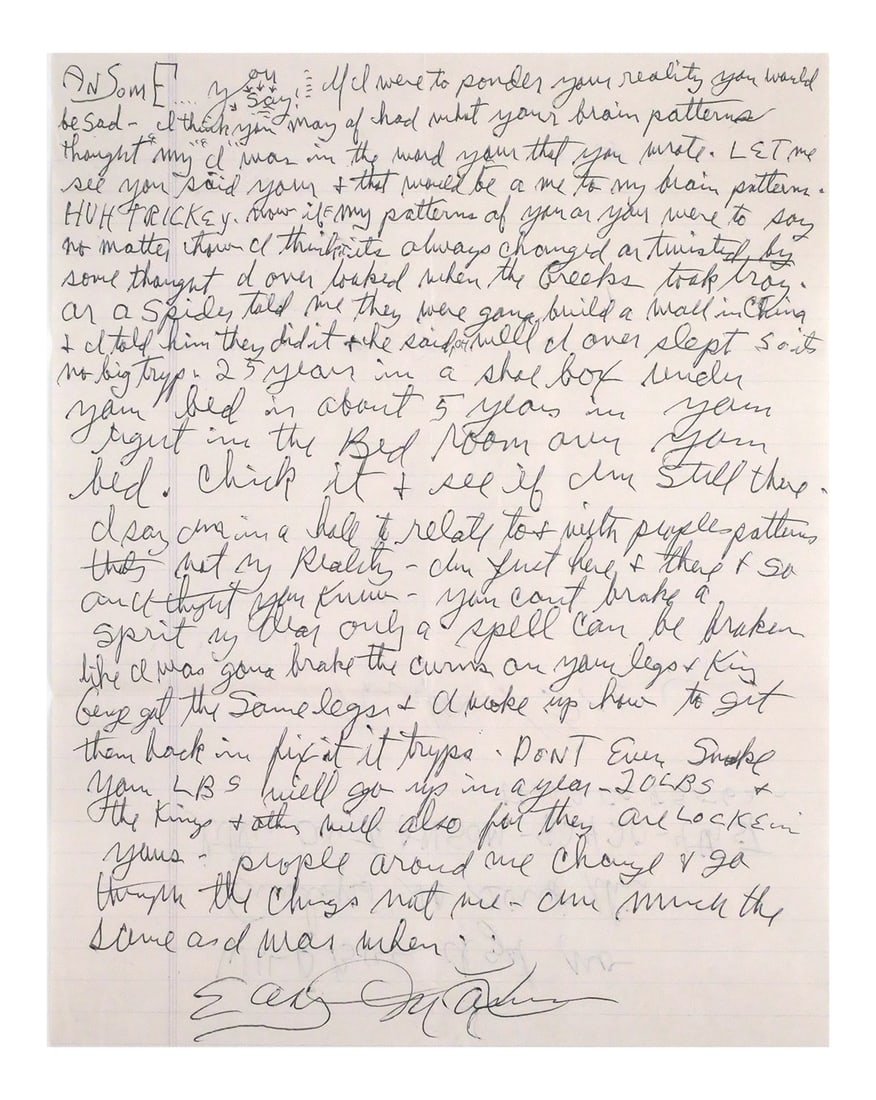 AnSomE.... you say! If I were to ponder your reality you would
be sad - I think you may of had what your brain patterns
thought "my" "I" was in the word your that you wrote. LET me
see you said your & that would be a me to my brain patterns.
HUH TRICKEy. now if my patterns of your or you were to say
no matter how I think its always changed or twisted by
some thought I over looked when the Greeks took troy.
or a Spider told me they were gona build a wall in China
& I told him they did it & he said well I over slept so its
no big tryp. 25 years in a shoe box under
your bed in about 5 years in your
right in the Bed room over your
bed. Chick it & see if Im Still there.
I say Im in a hall to relate to & with peoples patterns
thats not my Reality - Im Just here & there & so
and thight you know - you cant brake a
Sprit my Dear only a spell can be braken
like I was gona brake the curves on your legs & King
Geoge got the Same legs & I woke up how to git
them back in fix it it tryps. DONT Even Smoke
your LBS will go up in a year - 20 LBS &
the Kings & others will also for they are LOCKE in
yours - people around me change & go
through the chings not me - Im much the
same as I was when..